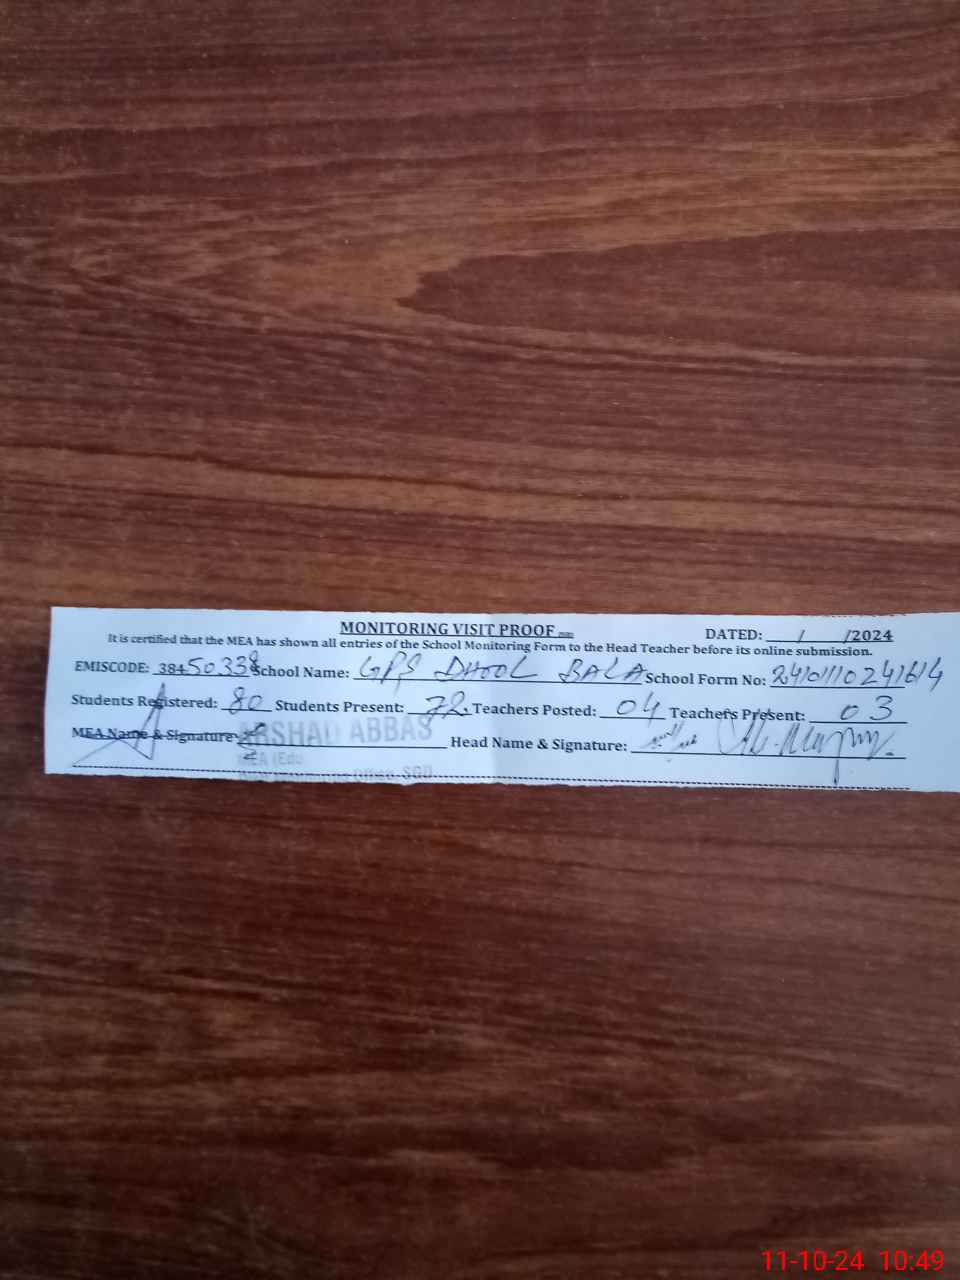 MONITORING VISIT PROOF
DATED: / /2024
It is certified that the MEA has shown all entries of the School Monitoring Form to the Head Teacher before its online submission.
EMISCODE: 38450338 School Name: GPS DHOOL BALA School Form No:
Students Registered: 80 Students Present: 72 Teachers Posted: 04 Teachers Present: 03
MEA Name & Signature: ARSHAD ABBAS Head Name & Signature:
MEA (Edu
Office SGD
11-10-24 10:49